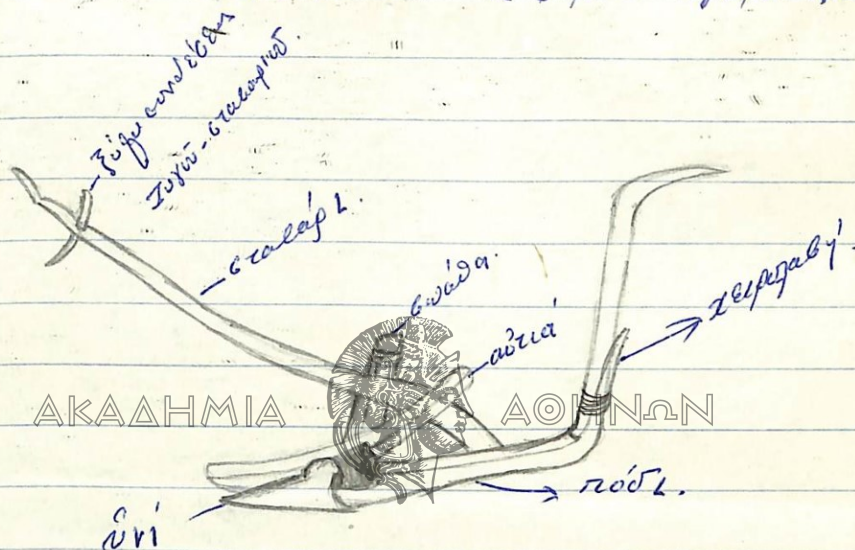 ξύλο συνδέσεως
ζυγοῦ - σταβαριοῦ.
σταβάρι.
σπάθα.
αὐτιά
χειρολαβή.
ΑΚΑΔΗΜΙΑ ΑΘΗΝΩΝ
πόδι.
ὑνί